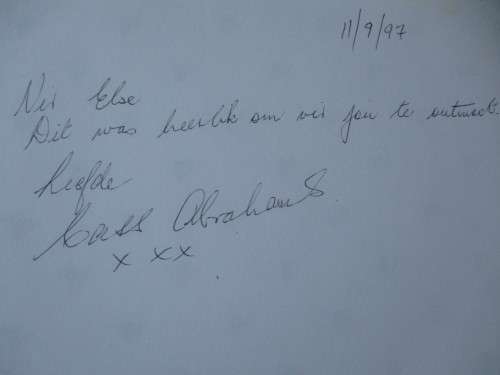 11/9/97
Vir Else
Dit was heerlik om vir jou te ontmoet.
Liefde
Cass Abrahams
x xx